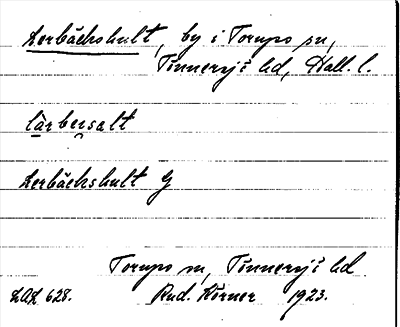 Lerbäckshult, by i Torups sn,
Tönnersjö hd, Hall. l.
lärbersalt
Lerbäckshult G
Torups sn, Tönnersjö hd
LAL 628. Rud. Körner 1923.